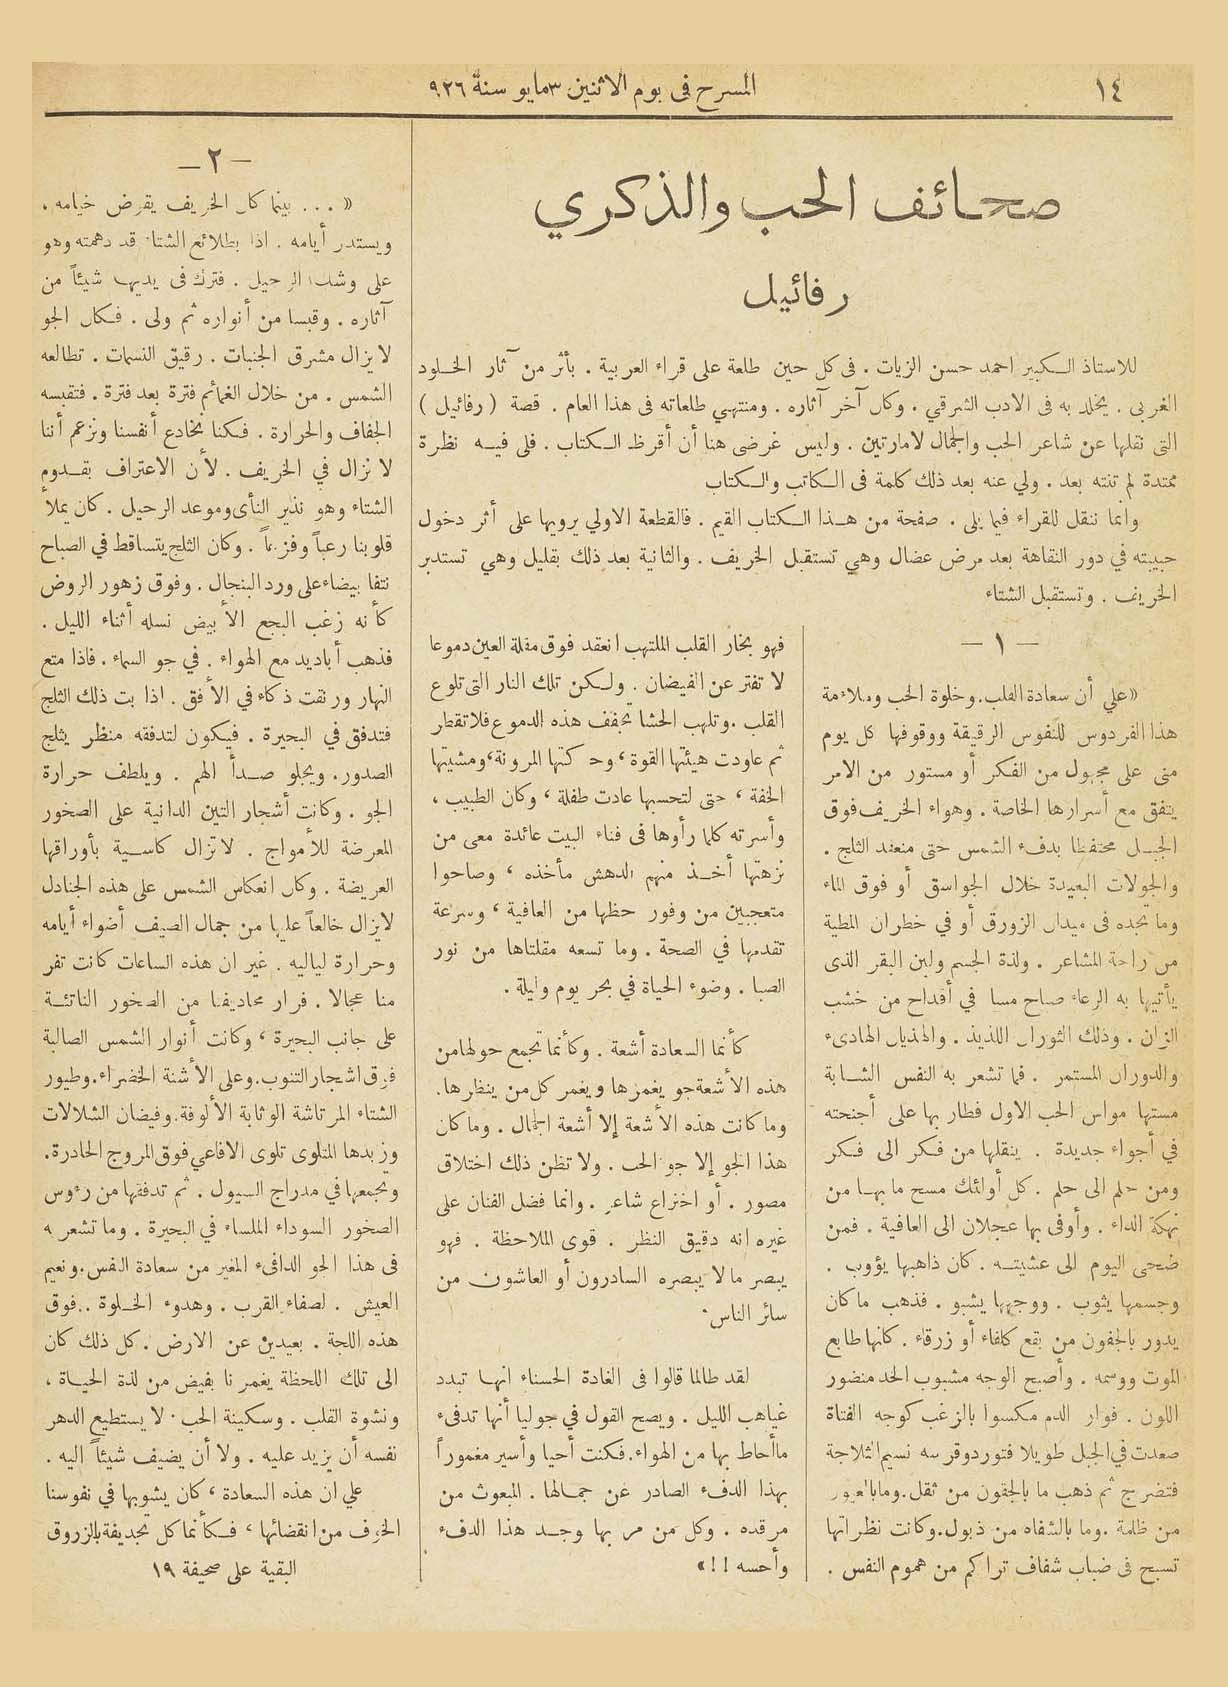 ١٤
المسرح فى يوم الاثنين ٣ مايو سنة ٩٢٦
صحائف الحب والذكري
رفائيل
للاستاذ الكبير احمد حسن الزيات . فى كل حين طلعة على قراء العربية . بأثر من آثار الخلود
الغربى . يخلد به فى الادب الشرقي . وكان آخر آثاره . ومنتهي طلعاته فى هذا العام . قصة ( رفائيل )
التى نقلها عن شاعر الحب والجمال لامارتين . وليس غرضى هنا أن أقرظ الكتاب . فلى فيه نظرة
ممتدة لم تنته بعد . ولي عنه بعد ذلك كلمة فى الكاتب والكتاب
وانما ننقل للقراء فيما يلى . صفحة من هذا الكتاب القيم . فالقطعة الاولي يرويها على أثر دخول
حبيبته في دور النقاهة بعد مرض عضال وهي تستقبل الخريف . والثانية بعد ذلك بقليل وهي تستدبر
الخريف . وتستقبل الشتاء
— ١ —
«علي أن سعادة القلب . وخلوة الحب وملاءمة
هذا الفردوس للنفوس الرقيقة ووقوفها كل يوم
منى على مجهول من الفكر أو مستور من الامر
يتفق مع أسرارها الخاصة . وهواء الخريف فوق
الجبل محتفظا بدفء الشمس حتى منعقد الثلج .
والجولات البعيدة خلال الجواسق أو فوق الماء
وما تجده فى ميدان الزورق أو في خطران المطية
من راحة المشاعر . ولذة الجسم ولبن البقر الذى
يأتيها به الرعاء صباح مسا في أقداح من خشب
الزان . وذلك الثوران اللذيذ . والهذيان الهادىء
والدوران المستمر . فما تشعر به النفس الشابة
مستها مواس الحب الاول فطار بها على أجنحته
في أجواء جديدة . ينقلها من فكر الى فكر
ومن حلم الى حلم . كل أولئك مسح ما بها من
نهكة الداء . وأوفى بها عجلان الى العافية . فمن
ضحى اليوم الى عشيته . كان ذاهبها يؤوب .
وجسمها يثوب . ووجهها يشبو . فذهب ما كان
يدور بالجفون من بقع كلفاء أو زرقاء . كانها طابع
الموت ووسمه . وأصبح الوجه مشبوب الخد منضور
اللون . فوار الدم مكسوا بالزغب كوجه الفتاة
صعدت في الجبل طويلا فتورد وقرسه نسيم الثلاجة
فتضرج ثم ذهب ما بالجفون من ثقل . وما بالعيون
من ظلمة . وما بالشفاه من ذبول . وكانت نظراتها
تسبح فى ضباب شفاف تراكم من هموم النفس .
فهو بخار القلب الملتهب انعقد فوق مقلة العين دموعا
لا تفتر عن الفيضان . ولكن تلك النار التى تلوع
القلب . وتلهب الحشا تجفف هذه الدموع فلا تقطر
ثم عاودت هيئتها القوة ، وحركتها المرونة ، ومشيتها
الخفة ، حتى لتحسبها عادت طفلة ، وكان الطبيب ،
وأسرته كلما رأوها فى فناء البيت عائدة معى من
نزهتها أخذ منهم الدهش مأخذه ، وصاحوا
متعجبين من وفور حظها من العافية ، وسرعة
تقدمها في الصحة . وما تسعه مقلتاها من نور
الصبا . وضوء الحياة في بحر يوم وليلة .
كأنما السعادة أشعة . وكأنما تجمع حولها من
هذه الأشعة جو يغمرها ويغمر كل من ينظرها .
وما كانت هذه الأشعة إلا أشعة الجمال . وما كان
هذا الجو إلا جو الحب . ولا تظن ذلك اختلاق
مصور . أو اختراع شاعر . وانما فضل الفنان على
غيره انه دقيق النظر . قوى الملاحظة . فهو
يبصر ما لا يبصره السادرون أو العاشون من
سائر الناس .
لقد طالما قالوا فى الغادة الحسناء انها تبدد
غياهب الليل . ويصح القول في جوليا أنها تدفىء
ما أحاط بها من الهواء . فكنت أحيا وأسير مغموراً
بهذا الدفء الصادر عن جمالها . المبعوث من
مرقده . وكل من مر بها وجد هذا الدفء
وأحسه ! ! »
— ٢ —
« . . . بينما كان الخريف يقوض خيامه .
ويستدبر أيامه . اذا بطلائع الشتاء قد دهمته وهو
على وشك الرحيل . فترك فى يديها شيئاً من
آثاره . وقبسا من أنواره ثم ولى . فكان الجو
لا يزال مشرق الجنبات . رقيق النسمات . تطالعه
الشمس . من خلال الغمائم فترة بعد فترة . فتقبسه
الجفاف والحرارة . فكنا نخادع أنفسنا ونزعم أننا
لا نزال في الخريف . لأن الاعتراف بقدوم
الشتاء وهو نذير النأى وموعد الرحيل . كان يملأ
قلوبنا رعباً وفزعاً . وكان الثلج يتساقط في الصباح
نتفا بيضاء على ورد البنجال . وفوق زهور الروض
كأنه زغب البجع الأبيض نسله أثناء الليل .
فذهب أباديد مع الهواء . في جو السماء . فاذا متع
النهار ورنقت ذكاء في الأفق . اذا بت ذلك الثلج
فتدفق في البحيرة . فيكون لتدفقه منظر يثلج
الصدور . ويجلو صدأ الهم . ويلطف حرارة
الجو . وكانت أشجار التين الدانية على الصخور
المعرضة للأمواج . لا تزال كاسية بأوراقها
العريضة . وكان انعكاس الشمس على هذه الجنادل
لا يزال خالعاً عليها من جمال الصيف أضواء أيامه
وحرارة لياليه . غير ان هذه الساعات كانت تفر
منا عجالا . فرار مجاديفنا من الصخور الناتئة
على جانب البحيرة ، وكانت أنوار الشمس الصالبة
فوق اشجار التنوب . وعلى الأشنة الخضراء . وطيور
الشتاء المرتاشة الوثابة الألوفة . وفيضان الشلالات
وزبدها المتلوى تلوى الافاعي فوق المروج الحادرة .
وتجمعها في مدراج السيول . ثم تدفقها من رءوس
الصخور السوداء الملساء في البحيرة . وما تشعر به
فى هذا الجو الدافىء المغير من سعادة النفس . ونعيم
العيش . لصفاء القرب . وهدوء الخلوة . . فوق
هذه اللجة . بعيدين عن الارض . كل ذلك كان
الى تلك اللحظة يغمرنا بفيض من لذة الحياة ،
ونشوة القلب . وسكينة الحب . لا يستطيع الدهر
نفسه أن يزيد عليه . ولا أن يضيف شيئاً اليه .
علي ان هذه السعادة ، كان يشوبها في نفوسنا
الخوف من انقضائها ، فكأنما كل تجديفة بالزروق
البقية على صحيفة ١٩